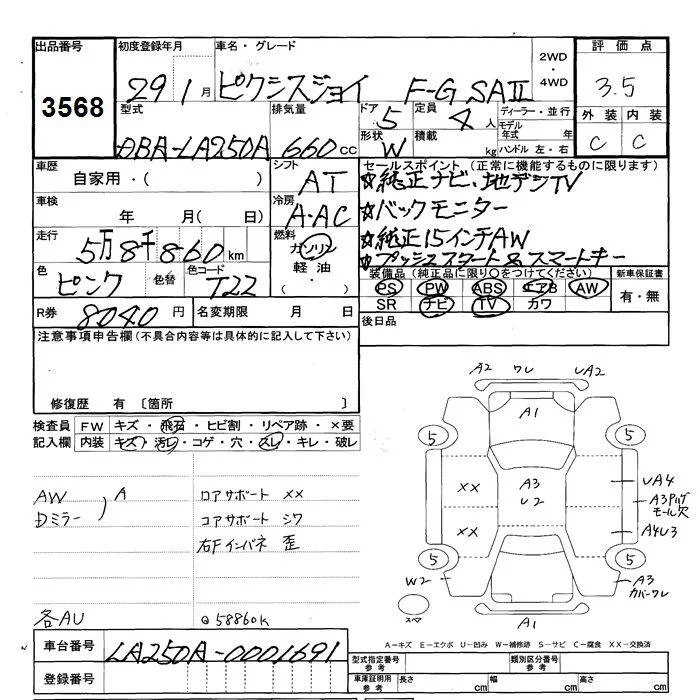 出品番号 初度登録年月 車名・グレード 2WD・4WD 評価点
3568 29 1月 ピクシスジョイ F-G SAⅡ 3.5
型式 排気量 ドア 5 定員 4人 ディーラー・並行 外装 内装
DBA-LA250A 660cc モデル年式 年 C C
形状 W 積載 kg ハンドル 左・右
車歴 シフト セールスポイント(正常に機能するものに限ります)
自家用・( ) AT ☆純正ナビ、地デジTV
車検 冷房 ☆バックモニター
年 月( 日) A・AC ☆純正15インチAW
走行 燃料 ☆プッシュスタート&スマートキー
5万8千860km ガソリン
色 ピンク 色替 色コード T22 軽油・( )
装備品(純正品に限り○をつけてください) 新車保証書
PS PW ABS エアB AW 有・無
SR ナビ TV カワ
R券 8040円 名変期限 月 日 後日品
注意事項申告欄(不具合内容等は具体的に記入して下さい)
修復歴 有 〔箇所 〕
検査員記入欄 FW キズ・飛石・ヒビ割・リペア跡・×要
内装 キズ・汚レ・コゲ・穴・スレ・キレ・破レ
AW A ロアサポート ××
Dミラー コアサポート シワ
右Fインパネ 歪
各AU @58860K
A2 ワレ UA2
A1
5 5
×× A3 U2 UA4
A3Pバグモール穴
×× A4U3
5 5
W2 A3 カバーワレ
スペア A1
A-キズ E-エクボ U-凹み W-補修跡 S-サビ C-腐食 XX-交換済
車台番号 LA250A-0001691
登録番号
型式指定番号 参考 類別区分番号 参考
車庫証明用 参考 長さ cm 幅 cm 高さ cm